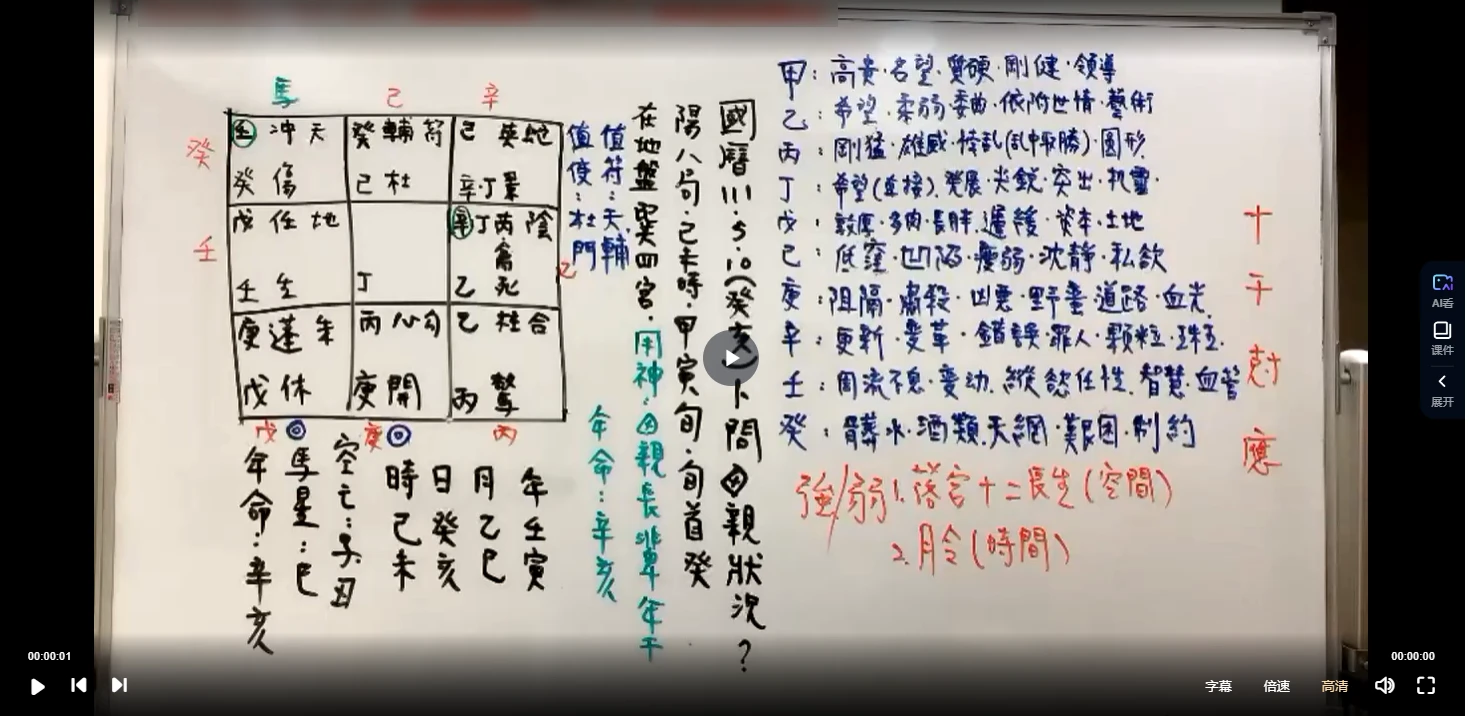 國曆111.5.10(癸亥)卜問母親狀況?
陽八局.己未時.甲寅旬.旬首癸
在地盤巽四宮.用神:母親長輩年干
年命:辛亥
值符:天輔
值使:杜門
馬
己
辛
癸
壬
乙
戊
庚
丙
壬 冲 天
癸 傷
癸 輔 符
己 杜
己 英 蛇
辛.丁 景
戊 任 地
壬 生
丁
辛 丁 丙 陰
禽
乙 死
庚 蓬 朱
戊 休
丙 心 勾
庚 開
乙 柱 合
丙 驚
年壬寅
月乙巳
日癸亥
時己未
空亡:子丑
馬星:巳
年命:辛亥
甲:高貴.名望.質硬.剛健.領導
乙:希望.柔弱委曲.依附世情.藝術
丙:剛猛.雄威.悖乱(乱中取勝).圓形
丁:希望(直接).發展.尖銳.突出.机靈.
戊:敦厚.多肉.長胖.遲緩.資本.土地
己:低窪.凹陷.瘦弱.沈靜.私欲
庚:阻隔.肅殺.凶悪.野蛮.道路.血光
辛:更新.變革.錯誤.罪人.顆粒.珠玉.
壬:周流不息.变动.縱慾任性.智慧.血管
癸:髒水.酒類.天網.艱困.制約
強/弱 1.落宮十二長生(空間)
2.月令(時間)
十干尅應
AI看
课件
展开
00:00:01
00:00:00
字幕
倍速
高清